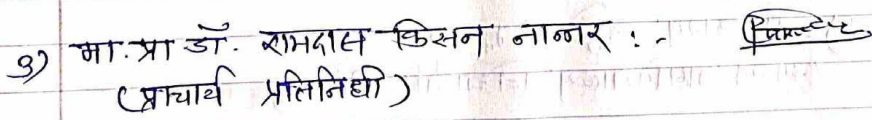 ३) मा. प्रा डॉ. रामदास किसन नान्नर :-
(प्राचार्य प्रतिनिधी)